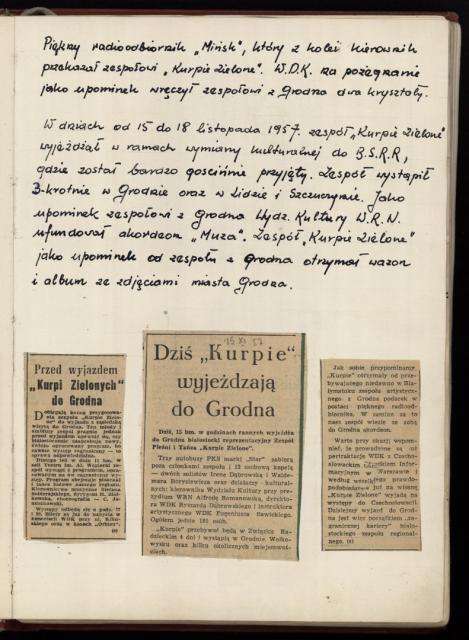 Piękny radioodbiornik „Mińsk", który z kolei kierownik
przekazał zespołowi „Kurpie Zielone". W.D.K. na pożegnanie
jako upominek wręczył zespołowi z Grodna dwa kryształy.
W dniach od 15 do 18 listopada 1957. zespół „Kurpie Zielone"
wyjeżdżał w ramach wymiany kulturalnej do B.S.R.R,
gdzie został bardzo gościnnie przyjęty. Zespół wystąpił
3-krotnie w Grodnie oraz w Lidzie i Szczuczynie. Jako
upominek zespołowi z Grodna Wydz. Kultury W.R.N.
ufundował akordeon „Muza". Zespół „Kurpie Zielone"
jako upominek od zespołu z Grodna otrzymał wazon
i album ze zdjęciami miasta Grodna.
Przed wyjazdem
„Kurpi Zielonych"
do Grodna
Dobiegają końca przygotowa-
nia zespołu „Kurpie Zielo-
ne" do wyjazdu z
wizytą do Grodna.
15 XI 57
Dziś „Kurpie"
wyjeżdzają
do Grodna
Dziś, 15 bm. w godzinach rannych wyjeżdża
do Grodna białostocki reprezentacyjny Zespół
Pieśni i Tańca „Kurpie Zielone".
Trzy autobusy PKS marki „Star" zabiorą
poza członkami zespołu i 12 osobową kapelą
— dwóch solistów Irenę Dąbrowską i Walde-
mara Borysiewicza oraz działaczy kulturai-
nych: kierownika Wydziału Kultury przy pre-
zydium WRN Alfreda Romanowska, dyrekto-
ra WDK Ryszarda Dąbrowskiego i instruktora
artystycznego WDK Eugeniusza Sawickiego.
Ogółem jedzie 101 osób.
„Kurpie" przebywać będą w Związku Ra-
dzieckim 4 dni i wystąpią w Grodnie, Wołko-
wysku oraz kilku okolicznych miejscowoś-
ciach.
Jak sobie przypominamy,
„Kurpie" otrzymały od prze-
bywającego niedawno w Bia-
łymstoku zespołu artystyczne-
go z Grodna podarek w
postaci pięknego radiood-
biornika. W zamian za to
nasz zespół wiezie ze sobą
do Grodna akordeon.
Warto przy okazji wspom-
nieć, że prowadzone są od
pertraktacje WDK z Czecho-
słowackim Ośrodkiem Infor-
macyjnym w Warszawie i
według wszelkiego prawdo-
podobieństwa już na wiosnę
„Kurpie Zielone" wyjadą na
występy do Czechosłowacji.
Dzisiejszy wyjazd do Grod-
na jest więc początkiem „za-
granicznej kariery" biało-
stockiego zespołu regional-
nego.